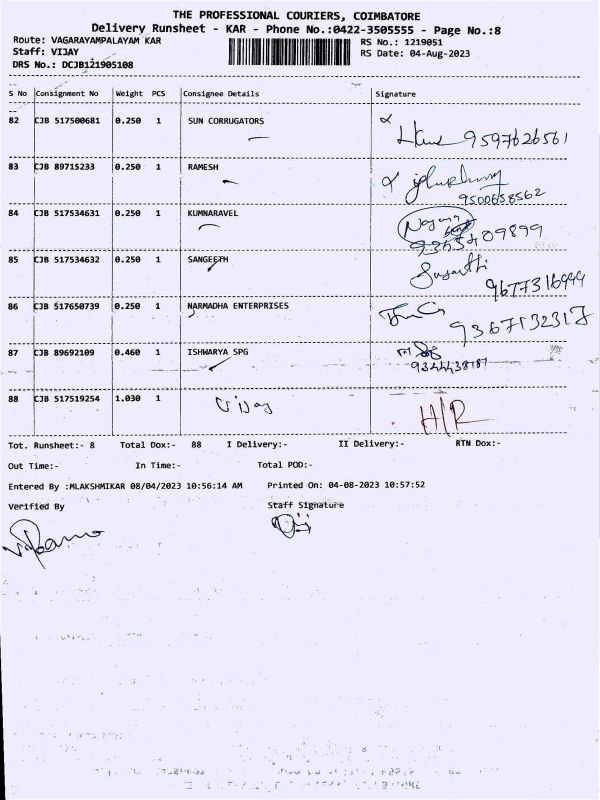 THE PROFESSIONAL COURIERS, COIMBATORE
Delivery Runsheet - KAR - Phone No.:0422-3505555 - Page No.:8
Route: VAGARAYAMPALAYAM KAR RS No.: 1219051
Staff: VIJAY RS Date: 04-Aug-2023
DRS No.: DCJB121905108
S No Consignment No Weight PCS Consignee Details Signature
82 CJB 517500681 0.250 1 SUN CORRUGATORS
9597626561
83 CJB 89715233 0.250 1 RAMESH
9500658562
84 CJB 517534631 0.250 1 KUMNARAVEL
9365409899
85 CJB 517534632 0.250 1 SANGEETH
9677316999
86 CJB 517650739 0.250 1 NARMADHA ENTERPRISES
9367132317
87 CJB 89692109 0.460 1 ISHWARYA SPG
9344438187
88 CJB 517519254 1.030 1 Vijay H/R
Tot. Runsheet:- 8 Total Dox:- 88 I Delivery:- II Delivery:- RTN Dox:-
Out Time:- In Time:- Total POD:-
Entered By :MLAKSHMIKAR 08/04/2023 10:56:14 AM Printed On: 04-08-2023 10:57:52
Verified By Staff Signature